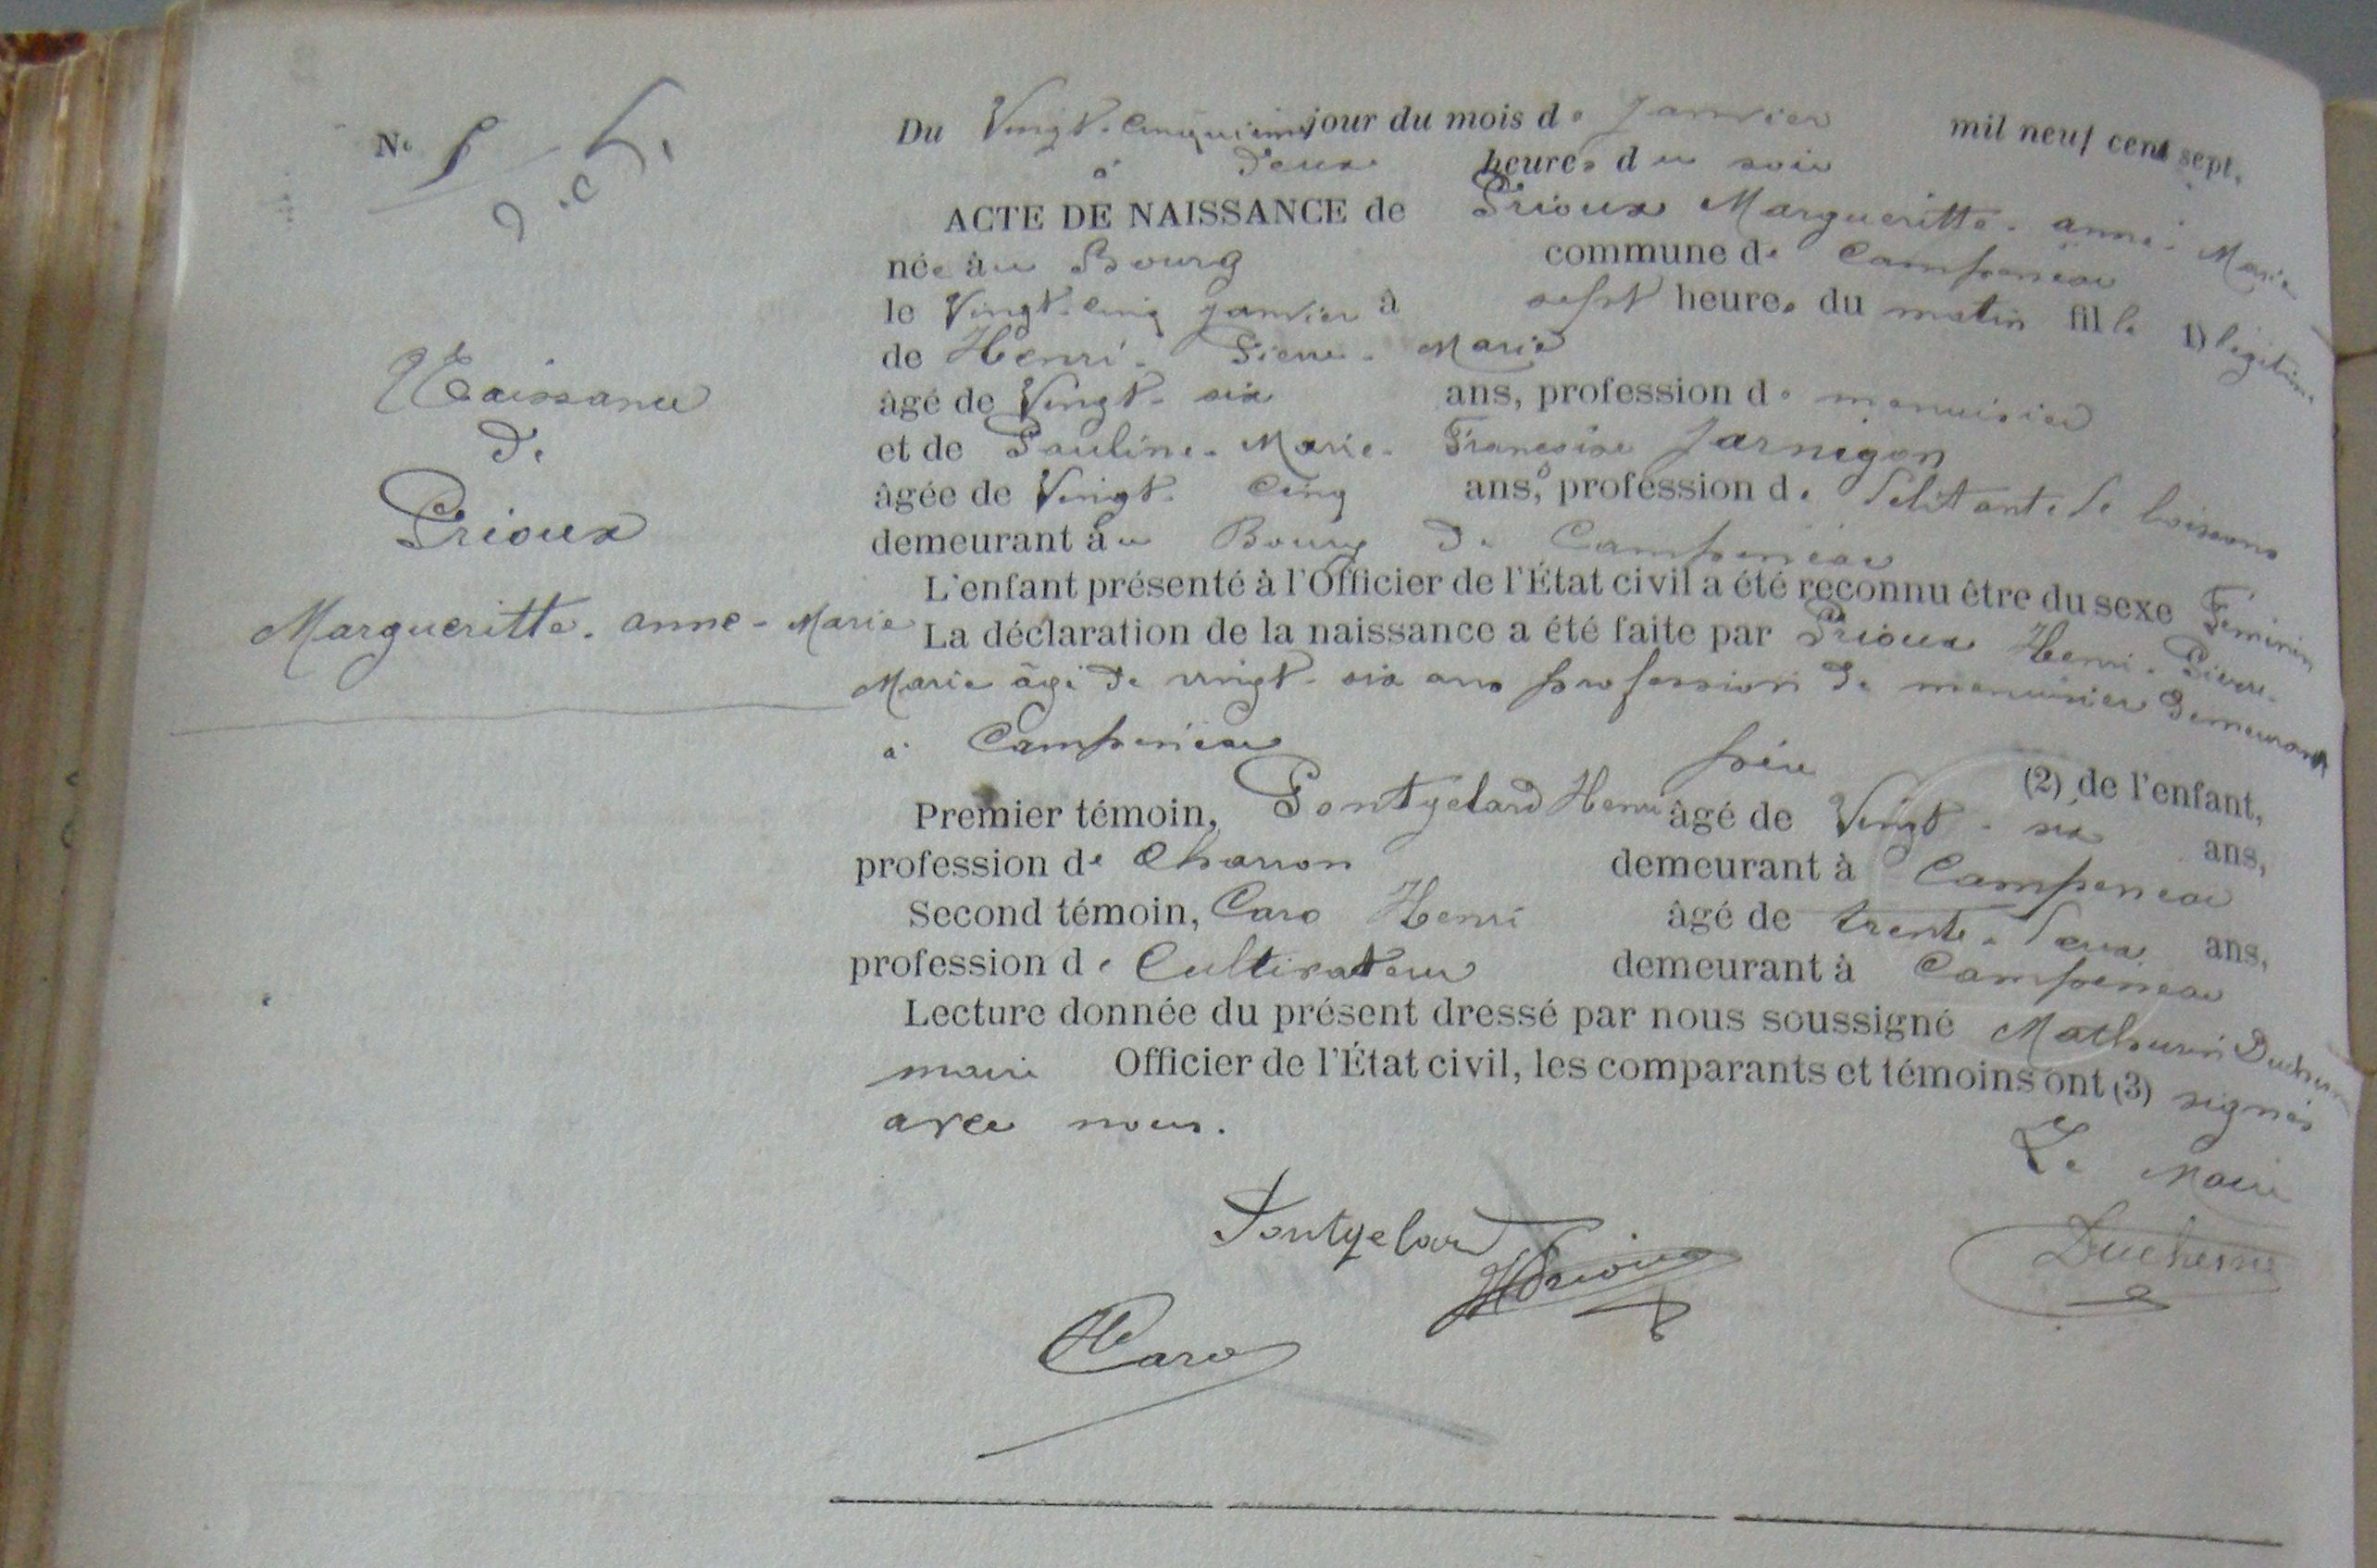 Du Vingt-cinquième jour du mois de Janvier mil neuf cent sept,
à deux heures du soir
N° 5
ACTE DE NAISSANCE de Prioux Margueritte-anne-Marie
née au Bourg commune de Campénéac
le Vingt-cinq janvier à sept heures du matin fille (1) légitime
de Henri-Pierre-Marie
âgé de Vingt-six ans, profession de menuisier
et de Pauline-Marie-Françoise Jarnigon
âgée de Vingt-cinq ans, profession de débitante de boissons
demeurant au Bourg de Campénéac
Naissance
de
Prioux
Margueritte-anne-Marie
L'enfant présenté à l'Officier de l'État civil a été reconnu être du sexe Féminin
La déclaration de la naissance a été faite par Prioux Henri-Pierre-
Marie âgé de vingt-six ans profession de menuisier demeurant
à Campénéac père (2) de l'enfant,
Premier témoin, Pontgelard Henri âgé de Vingt-six ans,
profession de Charron demeurant à Campeneac
Second témoin, Caro Henri âgé de trente-deux ans,
profession de Cultivateur demeurant à Campeneac
Lecture donnée du présent dressé par nous soussigné Mathurin Duchesne
maire Officier de l'État civil, les comparants et témoins ont (3) signés
avec nous.
Le Maire
Pontgelard
HPrioux
Duchesne
HCaro